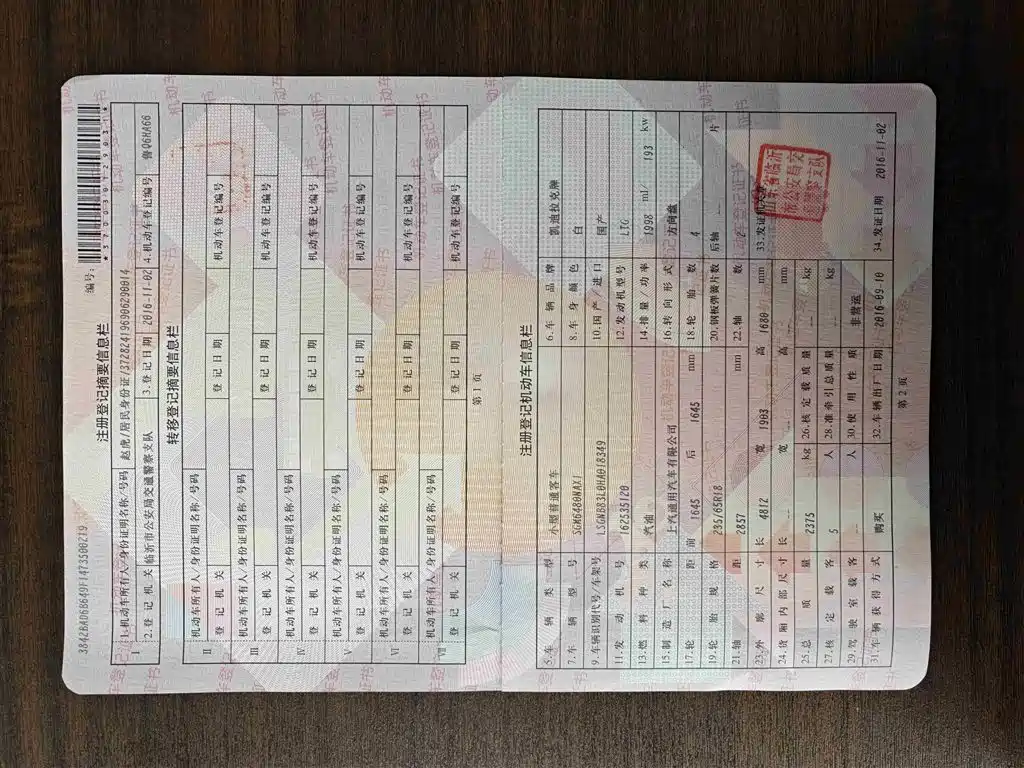 3842BA06B649F1473500219
编号：
*370030129031*
注册登记摘要信息栏
I 1.机动车所有人/身份证明名称/号码 赵虎/居民身份证/372824196906290014
2.登记机关 临沂市公安局交通警察支队 3.登记日期 2016-11-02 4.机动车登记编号 鲁Q6MA66
转移登记摘要信息栏
II 机动车所有人/身份证明名称/号码
登记机关 登记日期 机动车登记编号
III 机动车所有人/身份证明名称/号码
登记机关 登记日期 机动车登记编号
IV 机动车所有人/身份证明名称/号码
登记机关 登记日期 机动车登记编号
V 机动车所有人/身份证明名称/号码
登记机关 登记日期 机动车登记编号
VI 机动车所有人/身份证明名称/号码
登记机关 登记日期 机动车登记编号
VII 机动车所有人/身份证明名称/号码
登记机关 登记日期 机动车登记编号
第1页
注册登记机动车信息栏
5.车辆类型 小型普通客车 6.车辆品牌 凯迪拉克牌
7.车辆型号 SGM6480NAX1 8.车身颜色 白
9.车辆识别代号/车架号 LSGNB83L0HA018349 10.国产/进口 国产
11.发动机号 162535120 12.发动机型号 LTG
13.燃料种类 汽油 14.排量/功率 1998 ml/ 193 kw
15.制造厂名称 上汽通用汽车有限公司 16.转向形式 方向盘
17.轮距 前 1645 后 1645 mm 18.轮胎数 4
19.轮胎规格 235/65R18 20.钢板弹簧片数 后轴 -- 片
21.轴距 2857 mm 22.轴数 2
23.外廓尺寸 长 4812 宽 1903 高 1680 mm 33.发证机关
24.货厢内部尺寸 长 宽 高 mm
25.总质量 2375 kg 26.核定载质量 -- kg
27.核定载客 5 人 28.准牵引总质量 -- kg
29.驾驶室载客 -- 人 30.使用性质 非营运
31.车辆获得方式 购买 32.车辆出厂日期 2016-09-10 34.发证日期 2016-11-02
山东省临沂
市公安局交
通警察支队
第2页